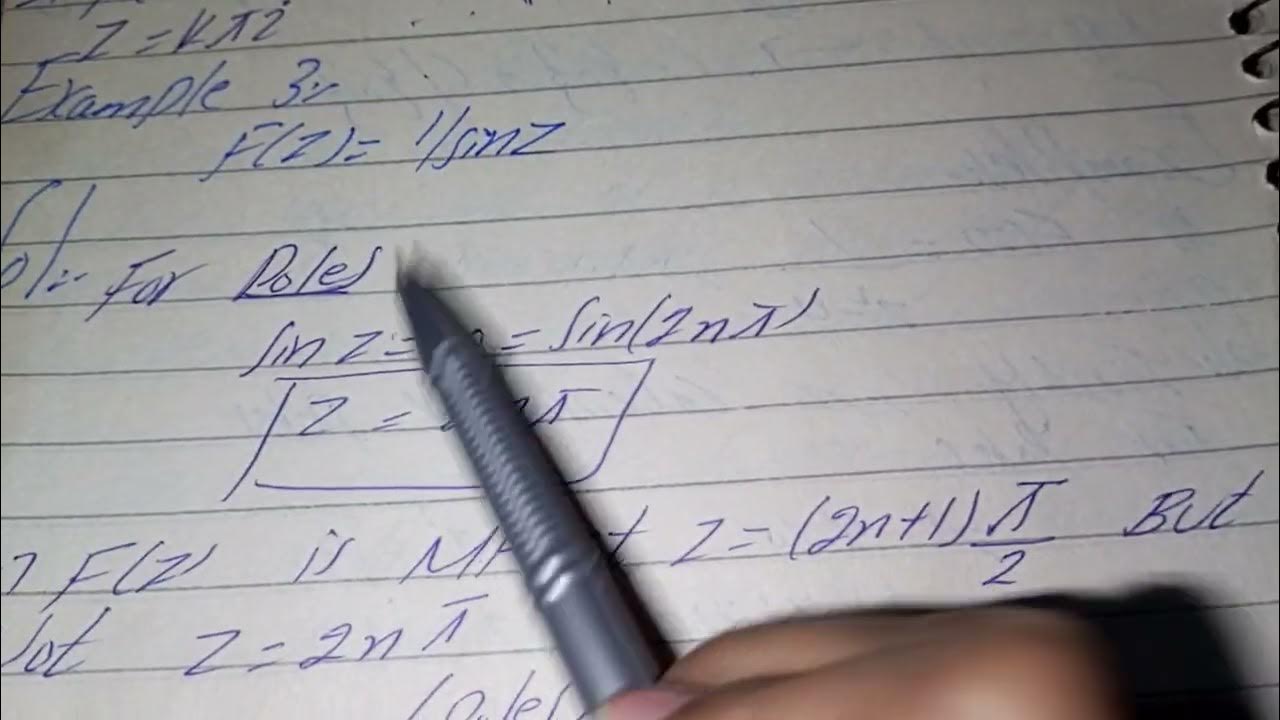 z = kπi
Example 3:-
F(z) = 1/sinz
Sol:- For Poles
sin z = = sin(2nπ)
z = nπ
F(z) is z = (2n+1) π/2 But
Not z = 2nπ
(Poles)